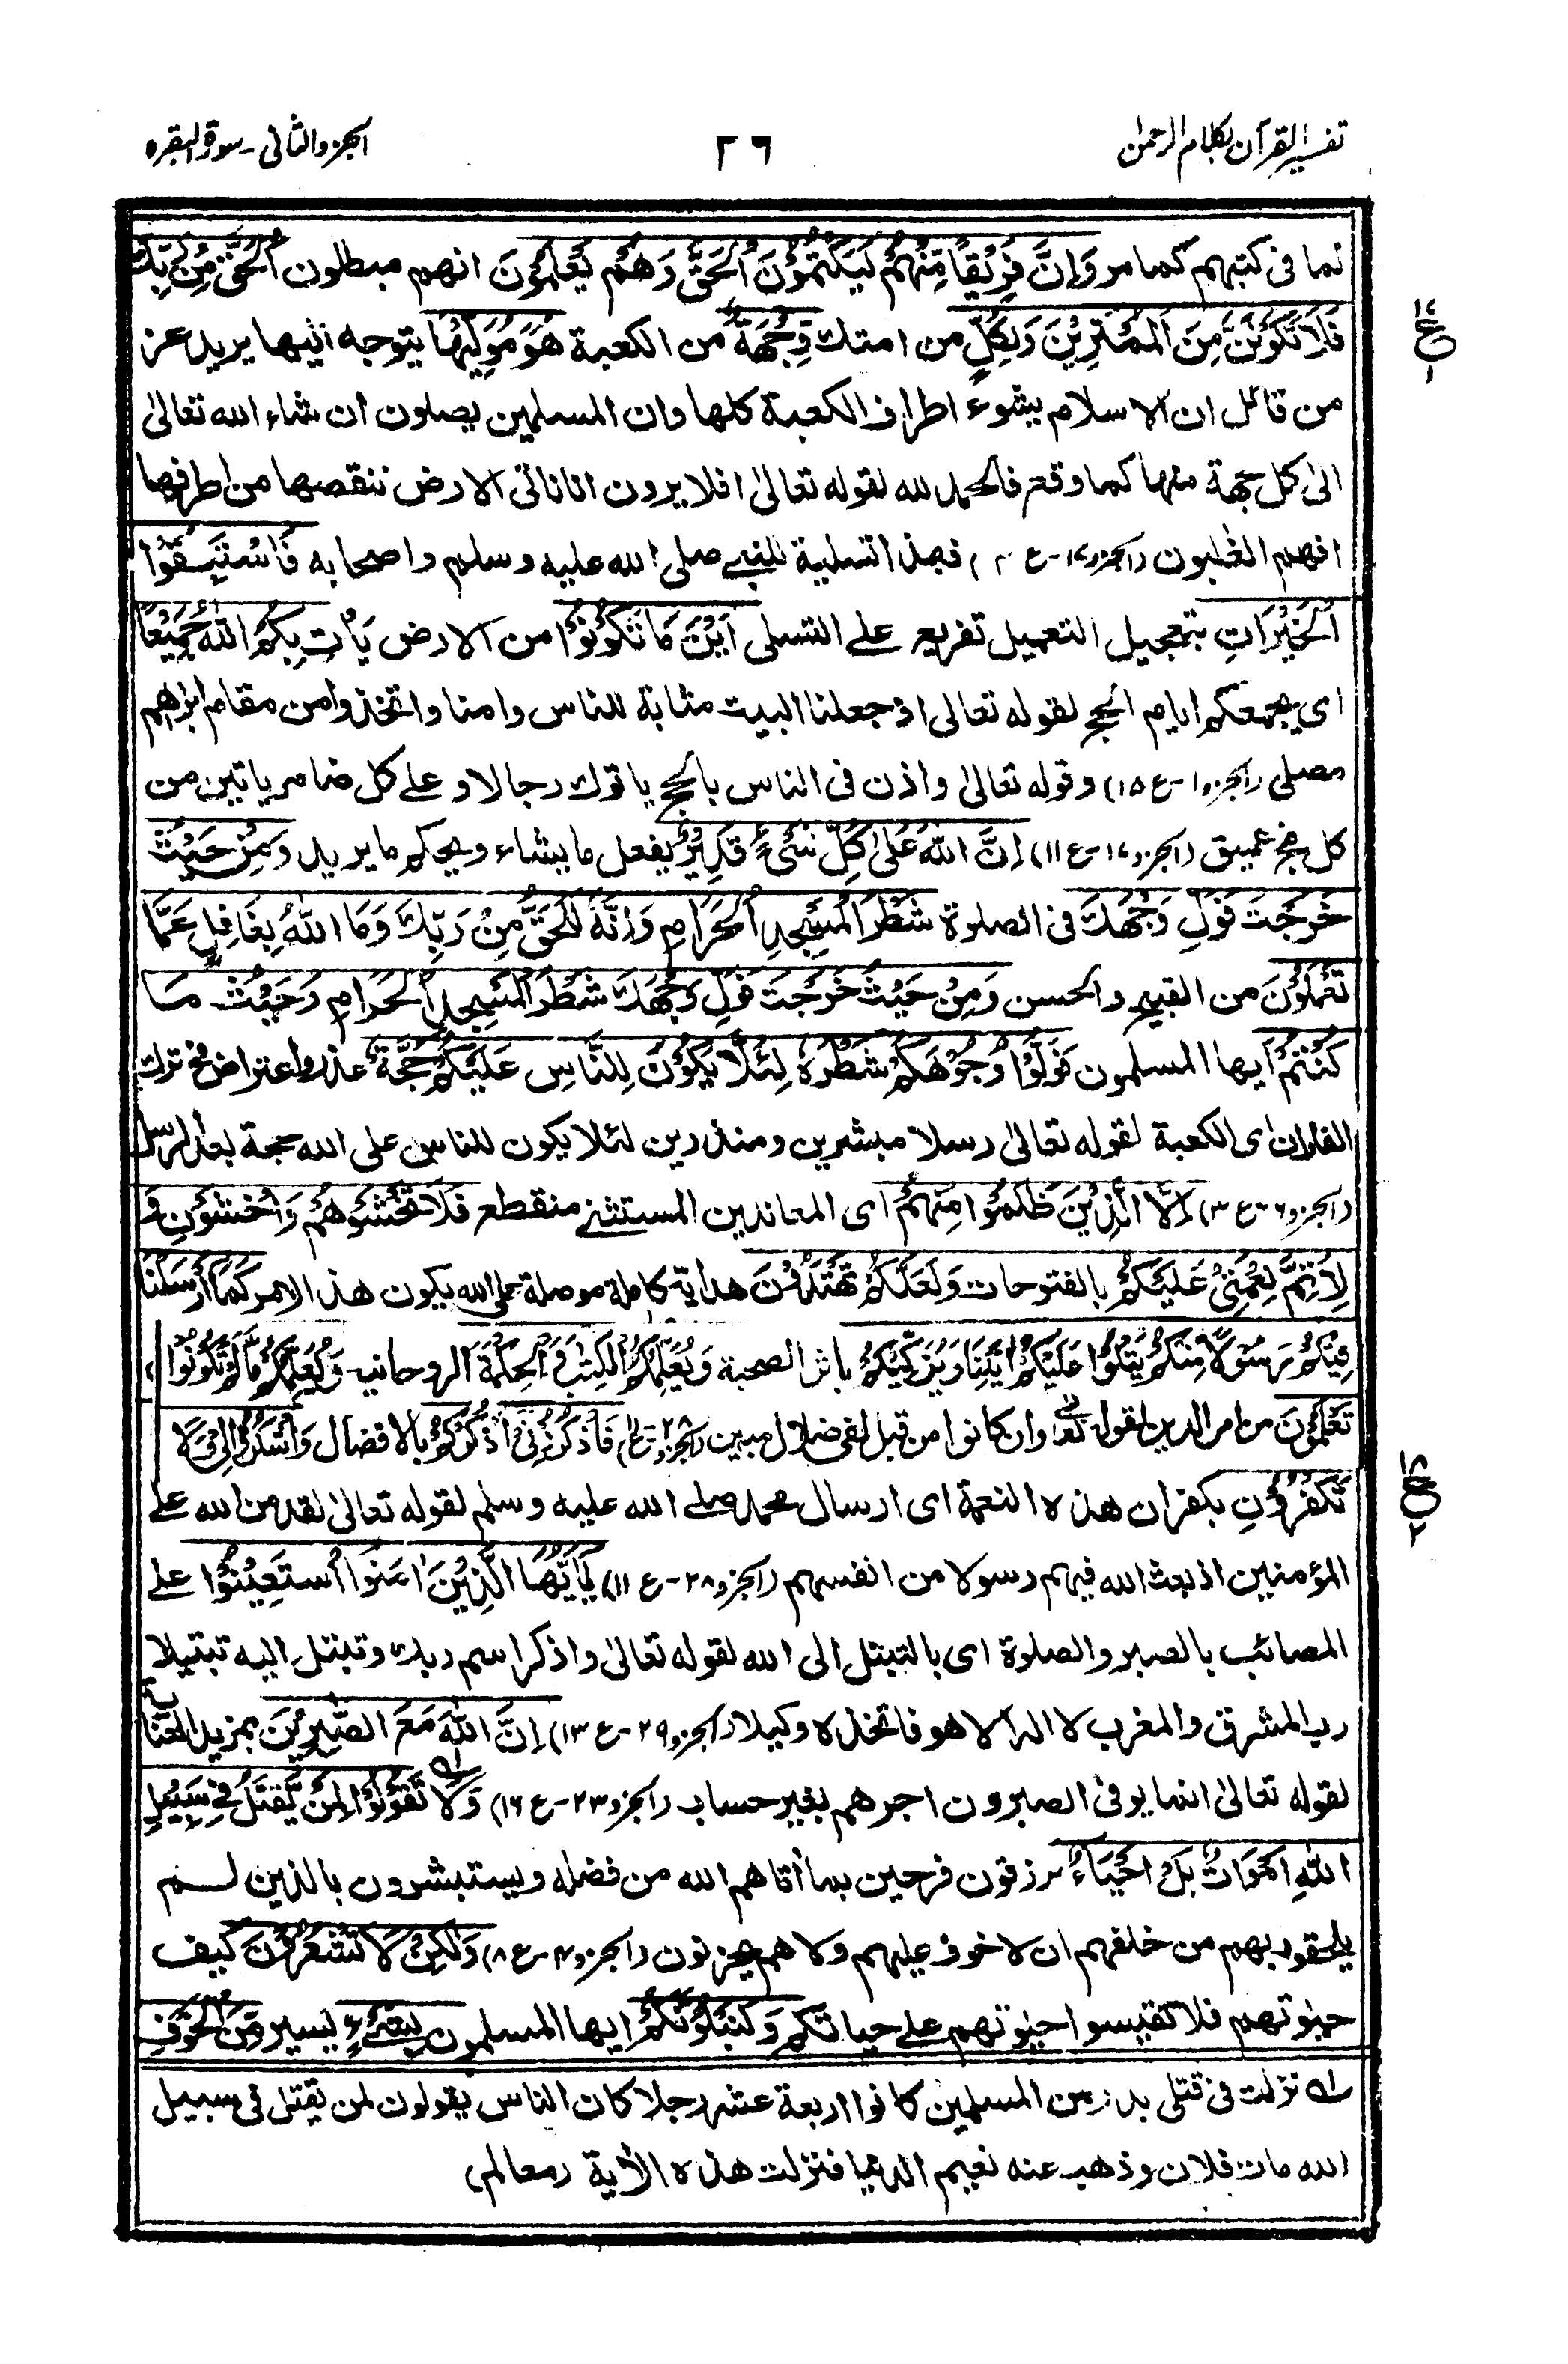 تفسير القرآن بكلام الرحمن
٢٦
الجزو الثانی - سورة البقره
لما فی کتبهم کما مر وَاِنَّ فَرِیْقًا مِّنْهُمْ لَیَکْتُمُوْنَ الْحَقَّ وَهُمْ یَعْلَمُوْنَ انهم مبطلون اَلْحَقُّ مِنْ رَّبِّكَ
فَلَا تَکُوْنَنَّ مِنَ الْمُمْتَرِیْنَ وَلِکُلٍّ من امتك وِّجْهَةٌ من الکعبة هُوَ مُوَلِّیْهَا یتوجه الیها یرید عز
من قائل ان الاسلام یشوء اطراف الکعبة کلها وان المسلمین یصلون ان شاء الله تعالیٰ
الیٰ کل جهة منها کما وقع فالحمد لله لقوله تعالیٰ افلا یرون انا ناتی الارض ننقصها من اطرافها
افهم الغٰلبون (الجزو ١٧ - ع ) فهذا تسلیة للنبی صلی الله علیه وسلم واصحابه فَاسْتَبِقُوا
الْخَیْرَاتِ بتعجیل التعمیل تفریع علی التسلی اَیْنَ مَا تَکُوْنُوْا من الارض یَأْتِ بِکُمُ اللّٰهُ جَمِیْعًا
ای یجمعکم ایام الحج لقوله تعالی اذ جعلنا البیت مثابة للناس وامنا واتخذوا من مقام ابراهم
مصلی (الجزو ١ - ع ١٥) وقوله تعالیٰ واذن فی الناس بالحج یاتوك رجالا و علی کل ضامر یاتین من
کل فج عمیق (الجزو ١٧ - ع ١١) اِنَّ اللّٰهَ عَلیٰ کُلِّ شَیْءٍ قَدِیْرٌ یفعل ما یشاء ویحکم ما یرید وَمِنْ حَیْثُ
خَرَجْتَ فَوَلِّ وَجْهَكَ فی الصلوة شَطْرَ الْمَسْجِدِ الْحَرَامِ وَاِنَّهٗ لَلْحَقُّ مِنْ رَّبِّكَ وَمَا اللّٰهُ بِغَافِلٍ عَمَّا
تَعْمَلُوْنَ من القبیح والحسن وَمِنْ حَیْثُ خَرَجْتَ فَوَلِّ وَجْهَكَ شَطْرَ الْمَسْجِدِ الْحَرَامِ وَحَیْثُ مَا
کُنْتُمْ ایها المسلمون فَوَلُّوْا وُجُوْهَکُمْ شَطْرَهٗ لِئَلَّا یَکُوْنَ لِلنَّاسِ عَلَیْکُمْ حُجَّةٌ عذر واعتراض فی ترك
الفاران ای الکعبة لقوله تعالیٰ رسلا مبشرین ومنذرین لئلا یکون للناس علی الله حجة بعد الرسل
(الجزو ٦ - ع ٣) اِلَّا الَّذِیْنَ ظَلَمُوْا مِنْهُمْ ای المعاندین المستثنی منقطع فَلَا تَخْشَوْهُمْ وَاخْشَوْنِ وَ
لِاُتِمَّ نِعْمَتِیْ عَلَیْکُمْ بالفتوحات وَلَعَلَّکُمْ تَهْتَدُوْنَ هدایة کاملة موصلة الی الله یکون هذا الامر کَمَا اَرْسَلْنَا
فِیْکُمْ رَسُوْلًا مِّنْکُمْ یَتْلُوْا عَلَیْکُمْ اٰیٰتِنَا وَیُزَکِّیْکُمْ باثر الصحبة وَیُعَلِّمُکُمُ الْکِتٰبَ وَالْحِکْمَةَ الروحانیة وَیُعَلِّمُکُمْ مَّا لَمْ تَکُوْنُوْا
تَعْلَمُوْنَ من امر الدین لقوله تعالی وان کانوا من قبل لفی ضلال مبین (الجزو ٢٨ - ع ) فَاذْکُرُوْنِیْ اَذْکُرْکُمْ بالافضال وَاشْکُرُوْا لِیْ وَلَا
تَکْفُرُوْنِ بکفران هذه النعمة ای ارسال محمد صلی الله علیه وسلم لقوله تعالیٰ لقد من الله علی
المؤمنین اذ بعث الله فیهم رسولا من انفسهم (الجزو ٢٨ - ع ١١) یٰاَیُّهَا الَّذِیْنَ اٰمَنُوا اسْتَعِیْنُوْا علی
المصائب بالصبر والصلوة ای بالتبتل الی الله لقوله تعالیٰ واذکر اسم ربك وتبتل الیه تبتیلا
رب المشرق والمغرب لا اله الا هو فاتخذه وکیلا (الجزو ٢٩ - ع ١٣) اِنَّ اللّٰهَ مَعَ الصّٰبِرِیْنَ بمزید العنایة
لقوله تعالیٰ انما یوفی الصبرون اجرهم بغیر حساب (الجزو ٢٣ - ع ١٦) وَلَا تَقُوْلُوْا لِمَنْ یُّقْتَلُ فِیْ سَبِیْلِ
اللّٰهِ اَمْوَاتٌ بَلْ اَحْیَاءٌ یرزقون فرحین بما أتاهم الله من فضله ویستبشرون بالذین لم
یلحقوا بهم من خلفهم ان لا خوف علیهم ولا هم یحزنون (الجزو ٤ - ع ٨) وَلٰکِنْ لَّا تَشْعُرُوْنَ کیف
حیٰوتهم فلا تقیسوا حیٰوتهم علی حیاتکم وَلَنَبْلُوَنَّکُمْ ایها المسلمون بِشَیْءٍ یسیر مِّنَ الْخَوْفِ
لـه نزلت فی قتلی بدر من المسلمین کانوا اربعة عشر رجلا کان الناس یقولون لمن یقتل فی سبیل
الله مات فلان وذهب عنه نعیم الدنیا فنزلت هذه الأیة (معالم)
١٧
ع
١
١٨
ع
٢